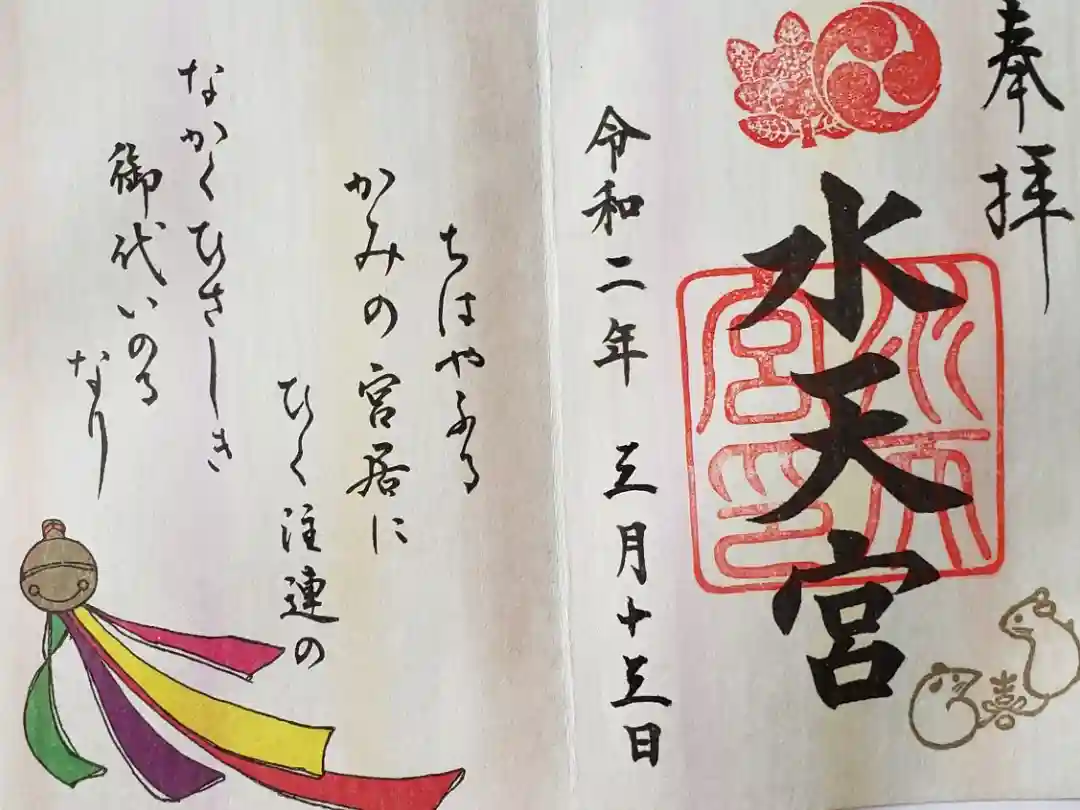 奉拝
水天宮
水天宮印
令和二年 三月十三日
ちはやふる
かみの宮居に
ひく注連の
なかくひさしき
御代いのる
なり
喜